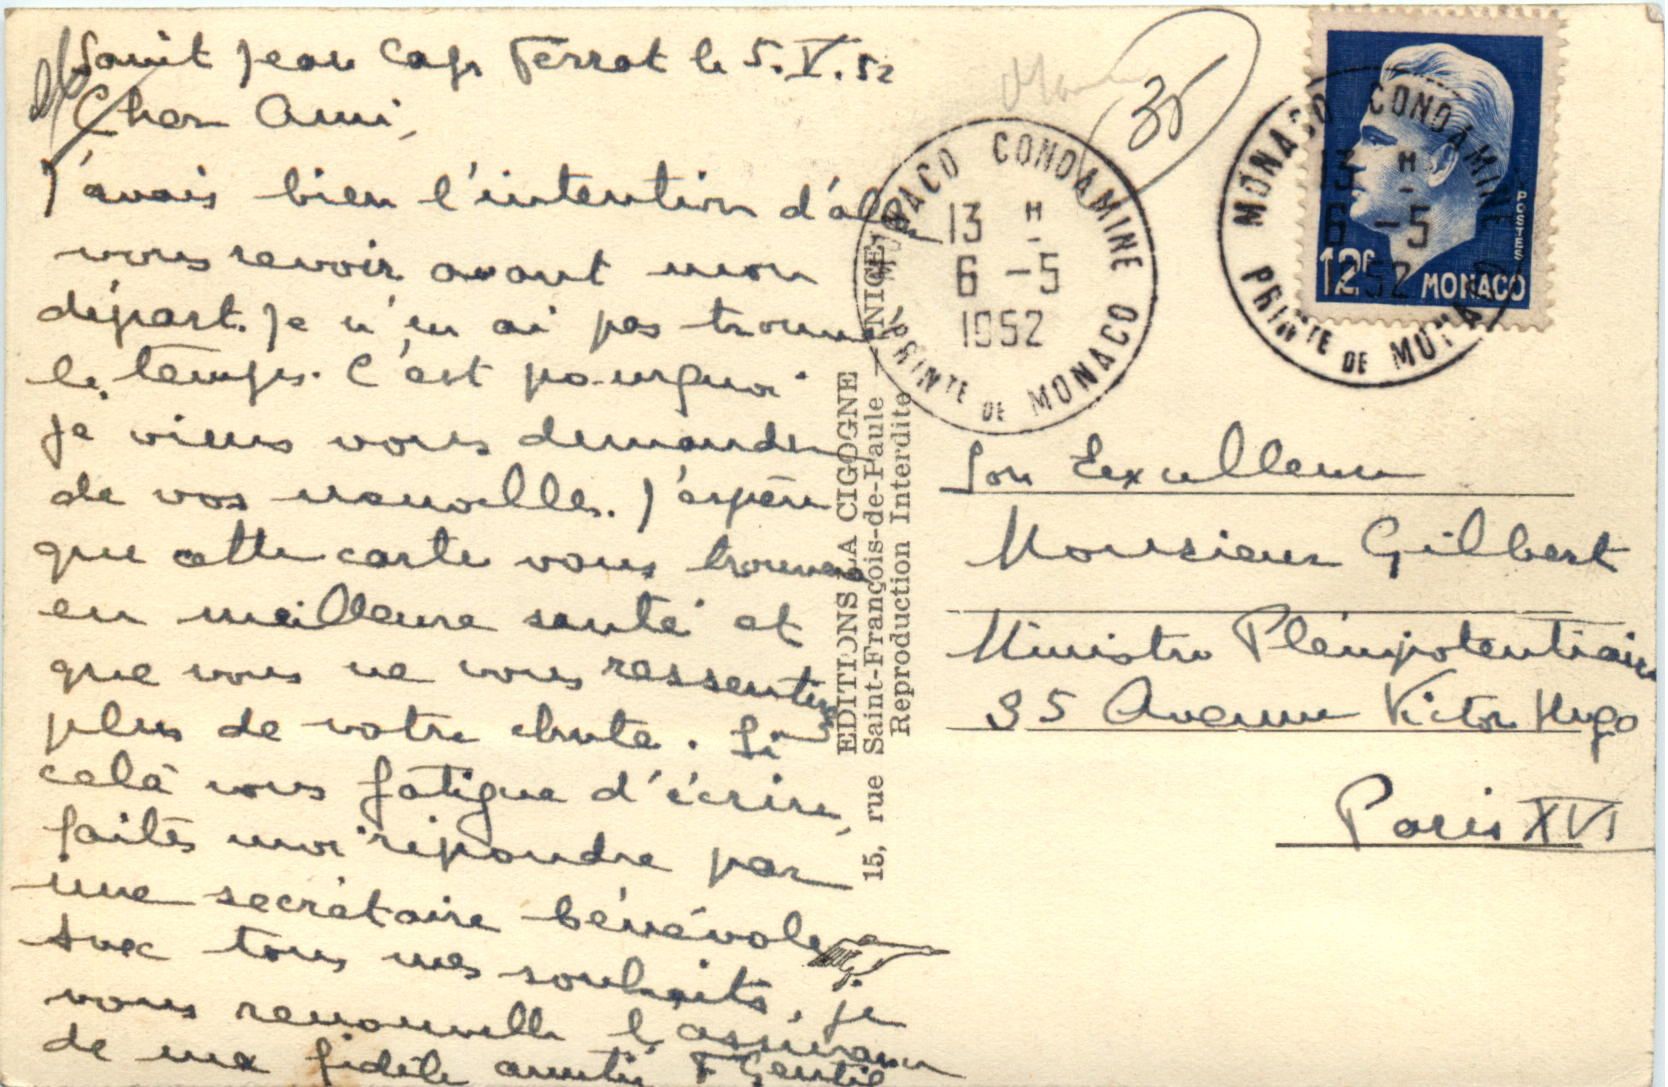 Saint Jean Cap Ferrat le 5.V.52
Cher Ami,
J'avais bien l'intention d'aller
vous revoir avant mon
départ. Je n'en ai pas trouvé
le temps. C'est pourquoi
je viens vous demander
de vos nouvelles. J'espère
que cette carte vous trouvera
en meilleure santé et
que vous ne vous ressentirez
plus de votre chute. Si
celà vous fatigue d'écrire,
faites moi répondre par
une secrétaire bénévole
Avec tous mes souhaits, je
vous renouvelle l'assurance
de ma fidèle amitié F Gentil
EDITIONS LA CIGOGNE
15, rue Saint-François-de-Paule — NICE
Reproduction Interdite
35
MONACO CONDAMINE
13 H
6 -5
1952
PRINTE DE MONACO
MONACO CONDAMINE
13 H
6 -5
1952
PRINTE DE MONACO
POSTES
12F MONACO
Son Excellence
Monsieur Gilbert
Ministre Plénipotentiaire
35 Avenue Victor Hugo
Paris XVI